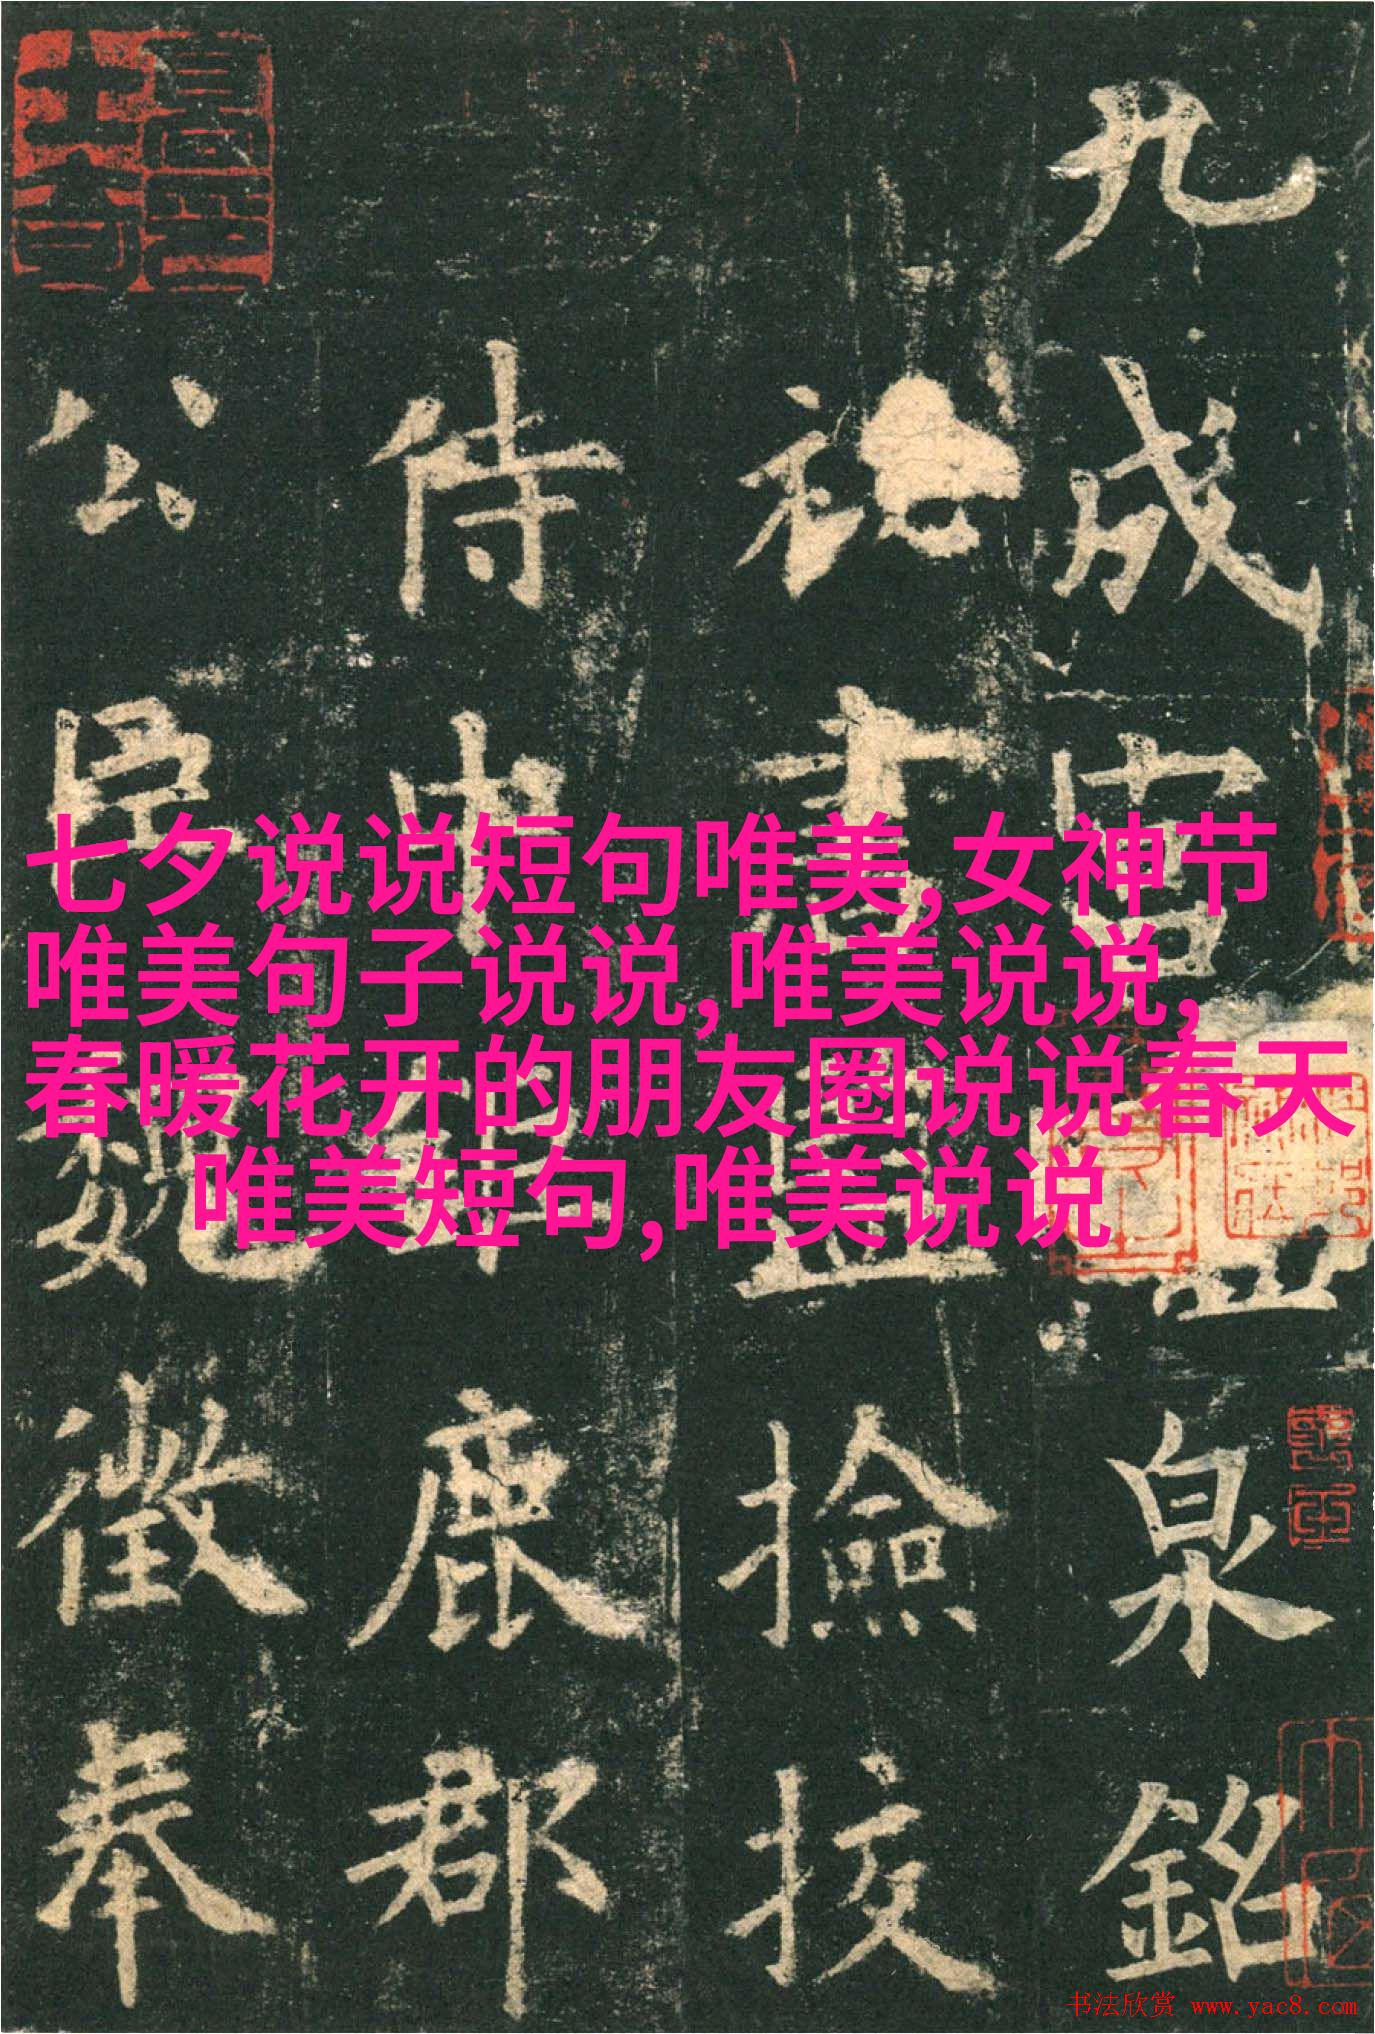 九成宮醴泉銘
祕書監撿挍
侍中鉅鹿郡
公臣魏徵奉
七夕说说短句唯美,女神节
唯美句子说说,唯美说说,
春暖花开的朋友圈说说春天
唯美短句,唯美说说
书法欣赏 www.yac8.com